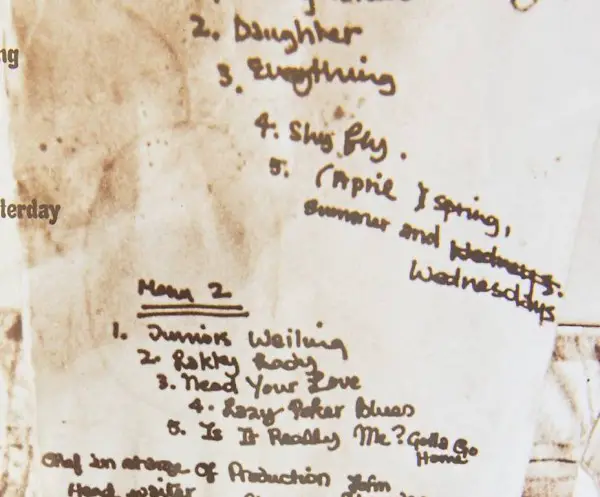 ng
2. Daughter
3. Everything
4. Shy fly.
5. (April) Spring,
terday
Summer and Wednesdays.
Wednesdays
Menu 2
1. Juniors Wailing
2. Rokky Rody
3. Need Your Love
4. Lazy Poker Blues
5. Is It Really Me? Gotta Go
Home
Chef in charge of Production John
Head waiter